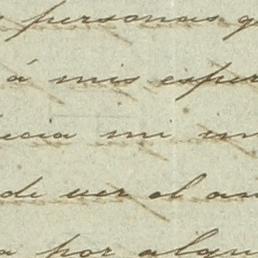 personas q
á mis esper
ecia mi in
de ver el an
a por algu